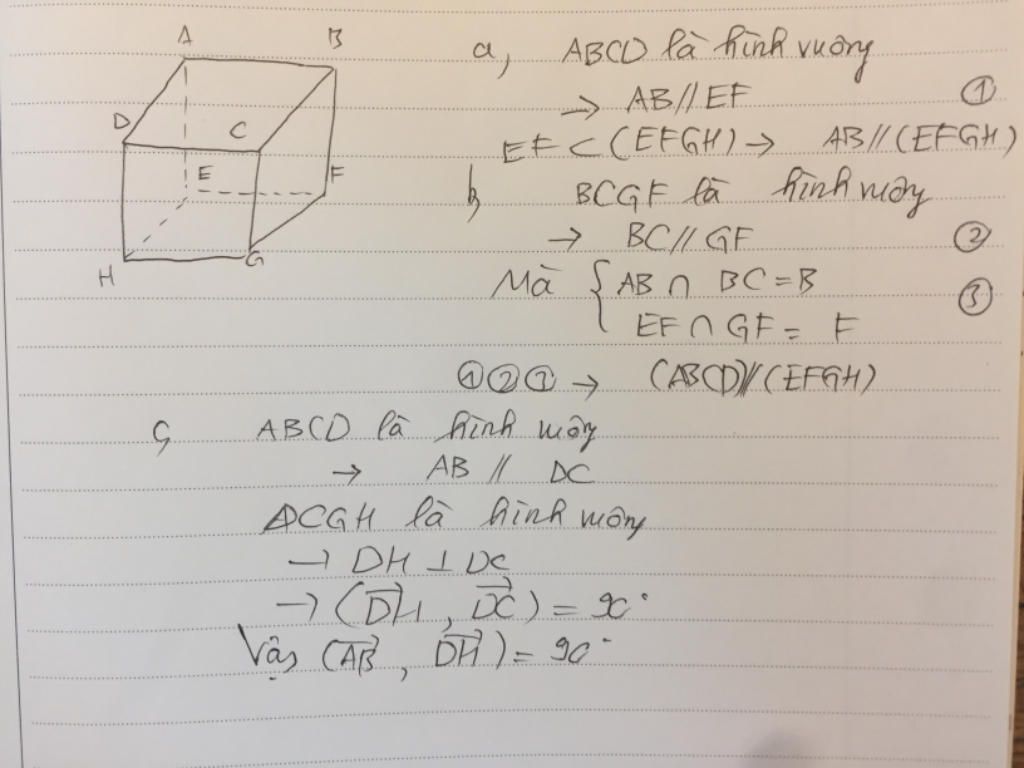 A B
D C
E F
H G
a, ABCD là hình vuông
→ AB // EF ①
EF ⊂ (EFGH) → AB // (EFGH)
b, BCGF là hình vuông
→ BC // GF ②
Mà { AB ∩ BC = B ③
EF ∩ GF = F
①②③ → (ABCD) // (EFGH)
c, ABCD là hình vuông
→ AB // DC
DCGH là hình vuông
→ DH ⊥ DC
→ (DH⃗, DC⃗) = 90°
Vậy (AB⃗, DH⃗) = 90°